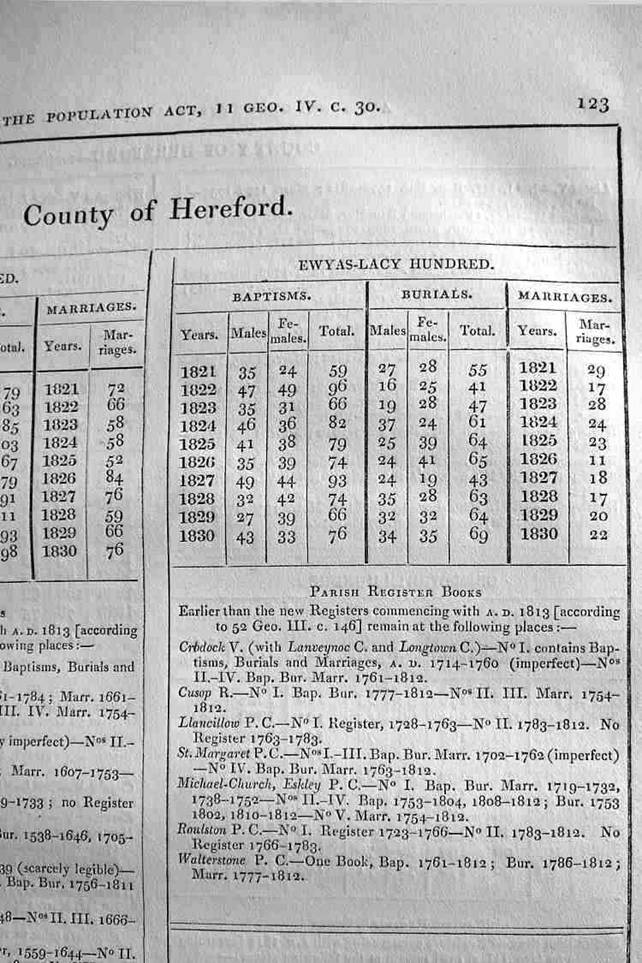 THE POPULATION ACT, 11 GEO. IV. C. 30.
123
County of Hereford.
ED.
MARRIAGES.
otal. Years. Mar-
riages.
79 1821 72
63 1822 66
85 1823 58
03 1824 58
67 1825 52
79 1826 84
91 1827 76
11 1828 59
93 1829 66
98 1830 76
h A. D. 1813 [according
owing places:—
Baptisms, Burials and
1-1784; Marr. 1661-
III. IV. Marr. 1754-
y imperfect)—Nos II.-
Marr. 1607-1753—
9-1733; no Register
ur. 1538-1646, 1705-
39 (scarcely legible)—
Bap. Bur. 1756-1811
48—Nos II. III. 1666-
r, 1559-1644—No II.
EWYAS-LACY HUNDRED.
BAPTISMS. BURIALS. MARRIAGES.
Years. Males Fe- Total. Males Fe- Total. Years. Mar-
males. males. riages.
1821 35 24 59 27 28 55 1821 29
1822 47 49 96 16 25 41 1822 17
1823 35 31 66 19 28 47 1823 28
1824 46 36 82 37 24 61 1824 24
1825 41 38 79 25 39 64 1825 23
1826 35 39 74 24 41 65 1826 11
1827 49 44 93 24 19 43 1827 18
1828 32 42 74 35 28 63 1828 17
1829 27 39 66 32 32 64 1829 20
1830 43 33 76 34 35 69 1830 22
PARISH REGISTER BOOKS
Earlier than the new Registers commencing with A. D. 1813 [according
to 52 Geo. III. c. 146] remain at the following places:—
Clodock V. (with Lanveynoc C. and Longtown C.)—No I. contains Bap-
tisms, Burials and Marriages, A. D. 1714-1760 (imperfect)—Nos
II.-IV. Bap. Bur. Marr. 1761-1812.
Cusop R.—No I. Bap. Bur. 1777-1812—Nos II. III. Marr. 1754-
1812.
Llancillow P. C.—No I. Register, 1728-1763—No II. 1783-1812. No
Register 1763-1783.
St. Margaret P. C.—Nos I.-III. Bap. Bur. Marr. 1702-1762 (imperfect)
—No IV. Bap. Bur. Marr. 1763-1812.
Michael-Church, Eskley P. C.—No I. Bap. Bur. Marr. 1719-1732,
1738-1752—Nos II.-IV. Bap. 1753-1804, 1808-1812; Bur. 1753
1802, 1810-1812—No V. Marr. 1754-1812.
Roulston P. C.—No I. Register 1723-1766—No II. 1783-1812. No
Register 1766-1783.
Walterstone P. C.—One Book, Bap. 1761-1812; Bur. 1786-1812;
Marr. 1777-1812.